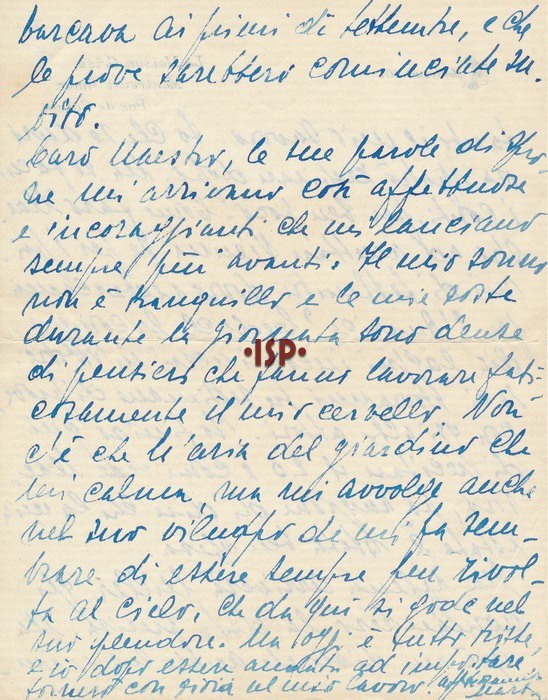 barcava ai primi di settembre, e che
le prove sarebbero cominciate su-
bito.
Caro Maestro, le sue parole di
ne mi arrivano così affettuose
e incoraggianti che mi lanciano
sempre più avanti. Il mio sonno
non è tranquillo e le mie soste
durante la giornata sono dense
ISP
di pensieri che fanno lavorare fati-
cosamente il mio cervello. Non
c'è che l'aria del giardino che
mi calma, ma mi avvolge anche
nel suo viluppo che mi fa sem-
brare di essere sempre più rivol-
ta al cielo, che da qui si gode nel
suo splendore. Ma oggi è tutto triste,
e io dopo essere andata ad impostare,
tornerò con gioia al mio lavoro